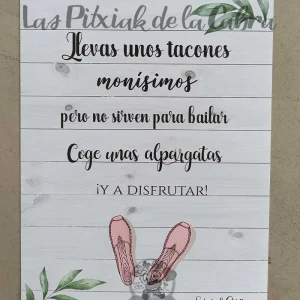 Las Pitxiak de la Cabra
Llevas unos tacones
monísimos
pero no sirven para bailar
Coge unas alpargatas
¡Y A DISFRUTAR!